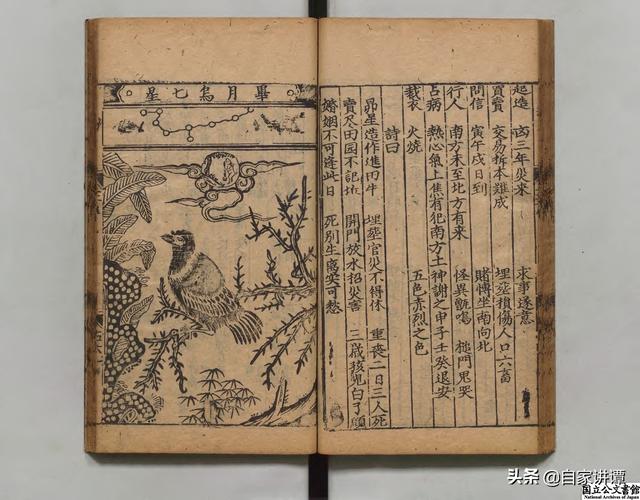 起造 凶三年災来 求事遂意
買賣 交易拆本難成 埋葬損傷人口六畜
問信 寅午戌日到 賭博坐南向北
行人 南方未至北方有来 怪異甑鳴 搥門鬼哭
占病 熱心氣上焦有犯南方土 神謝之申子壬癸退安
裁衣 火燒 五色赤烈之色
詩曰
昴星造作進田牛 埋葬官災不得休 重喪二日三人死
賣尽田园不記坵 開門放水招災害 三歲孩兒白了頭
婚姻不可逢此日 死別生离实可愁
畢月烏七星
头条 @自家讲谭
国立公文書館
National Archives of Japan